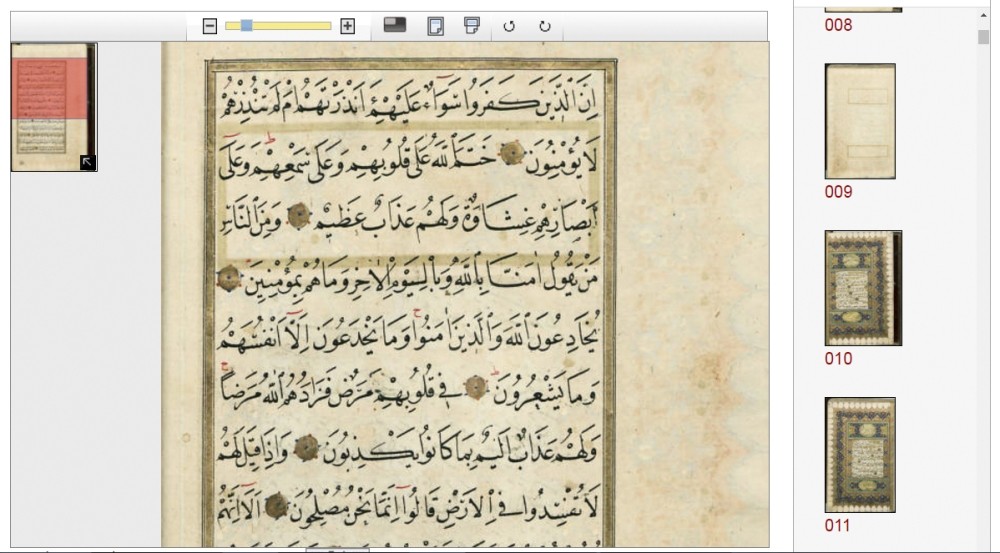 اِنَّ الَّذِينَ كَفَرُوا سَوَآءٌ عَلَيْهِمْ ءَاَنْذَرْتَهُمْ اَمْ لَمْ تُنْذِرْهُمْ
لَا يُؤْمِنُونَ خَتَمَ اللّٰهُ عَلٰى قُلُوبِهِمْ وَعَلٰى سَمْعِهِمْ وَعَلٰٓى
اَبْصَارِهِمْ غِشَاوَةٌ وَلَهُمْ عَذَابٌ عَظِيمٌ وَمِنَ النَّاسِ
مَنْ يَقُولُ اٰمَنَّا بِاللّٰهِ وَبِالْيَوْمِ الْاٰخِرِ وَمَا هُمْ بِمُؤْمِنِينَ
يُخَادِعُونَ اللّٰهَ وَالَّذِينَ اٰمَنُوا وَمَا يَخْدَعُونَ اِلَّٓا اَنْفُسَهُمْ
وَمَا يَشْعُرُونَ فِي قُلُوبِهِمْ مَرَضٌ فَزَادَهُمُ اللّٰهُ مَرَضًا
وَلَهُمْ عَذَابٌ اَلِيمٌ بِمَا كَانُوا يَكْذِبُونَ وَاِذَا قِيلَ لَهُمْ
لَا تُفْسِدُوا فِي الْاَرْضِ قَالُوٓا اِنَّمَا نَحْنُ مُصْلِحُونَ اَلَٓا اِنَّهُمْ
008
009
010
011